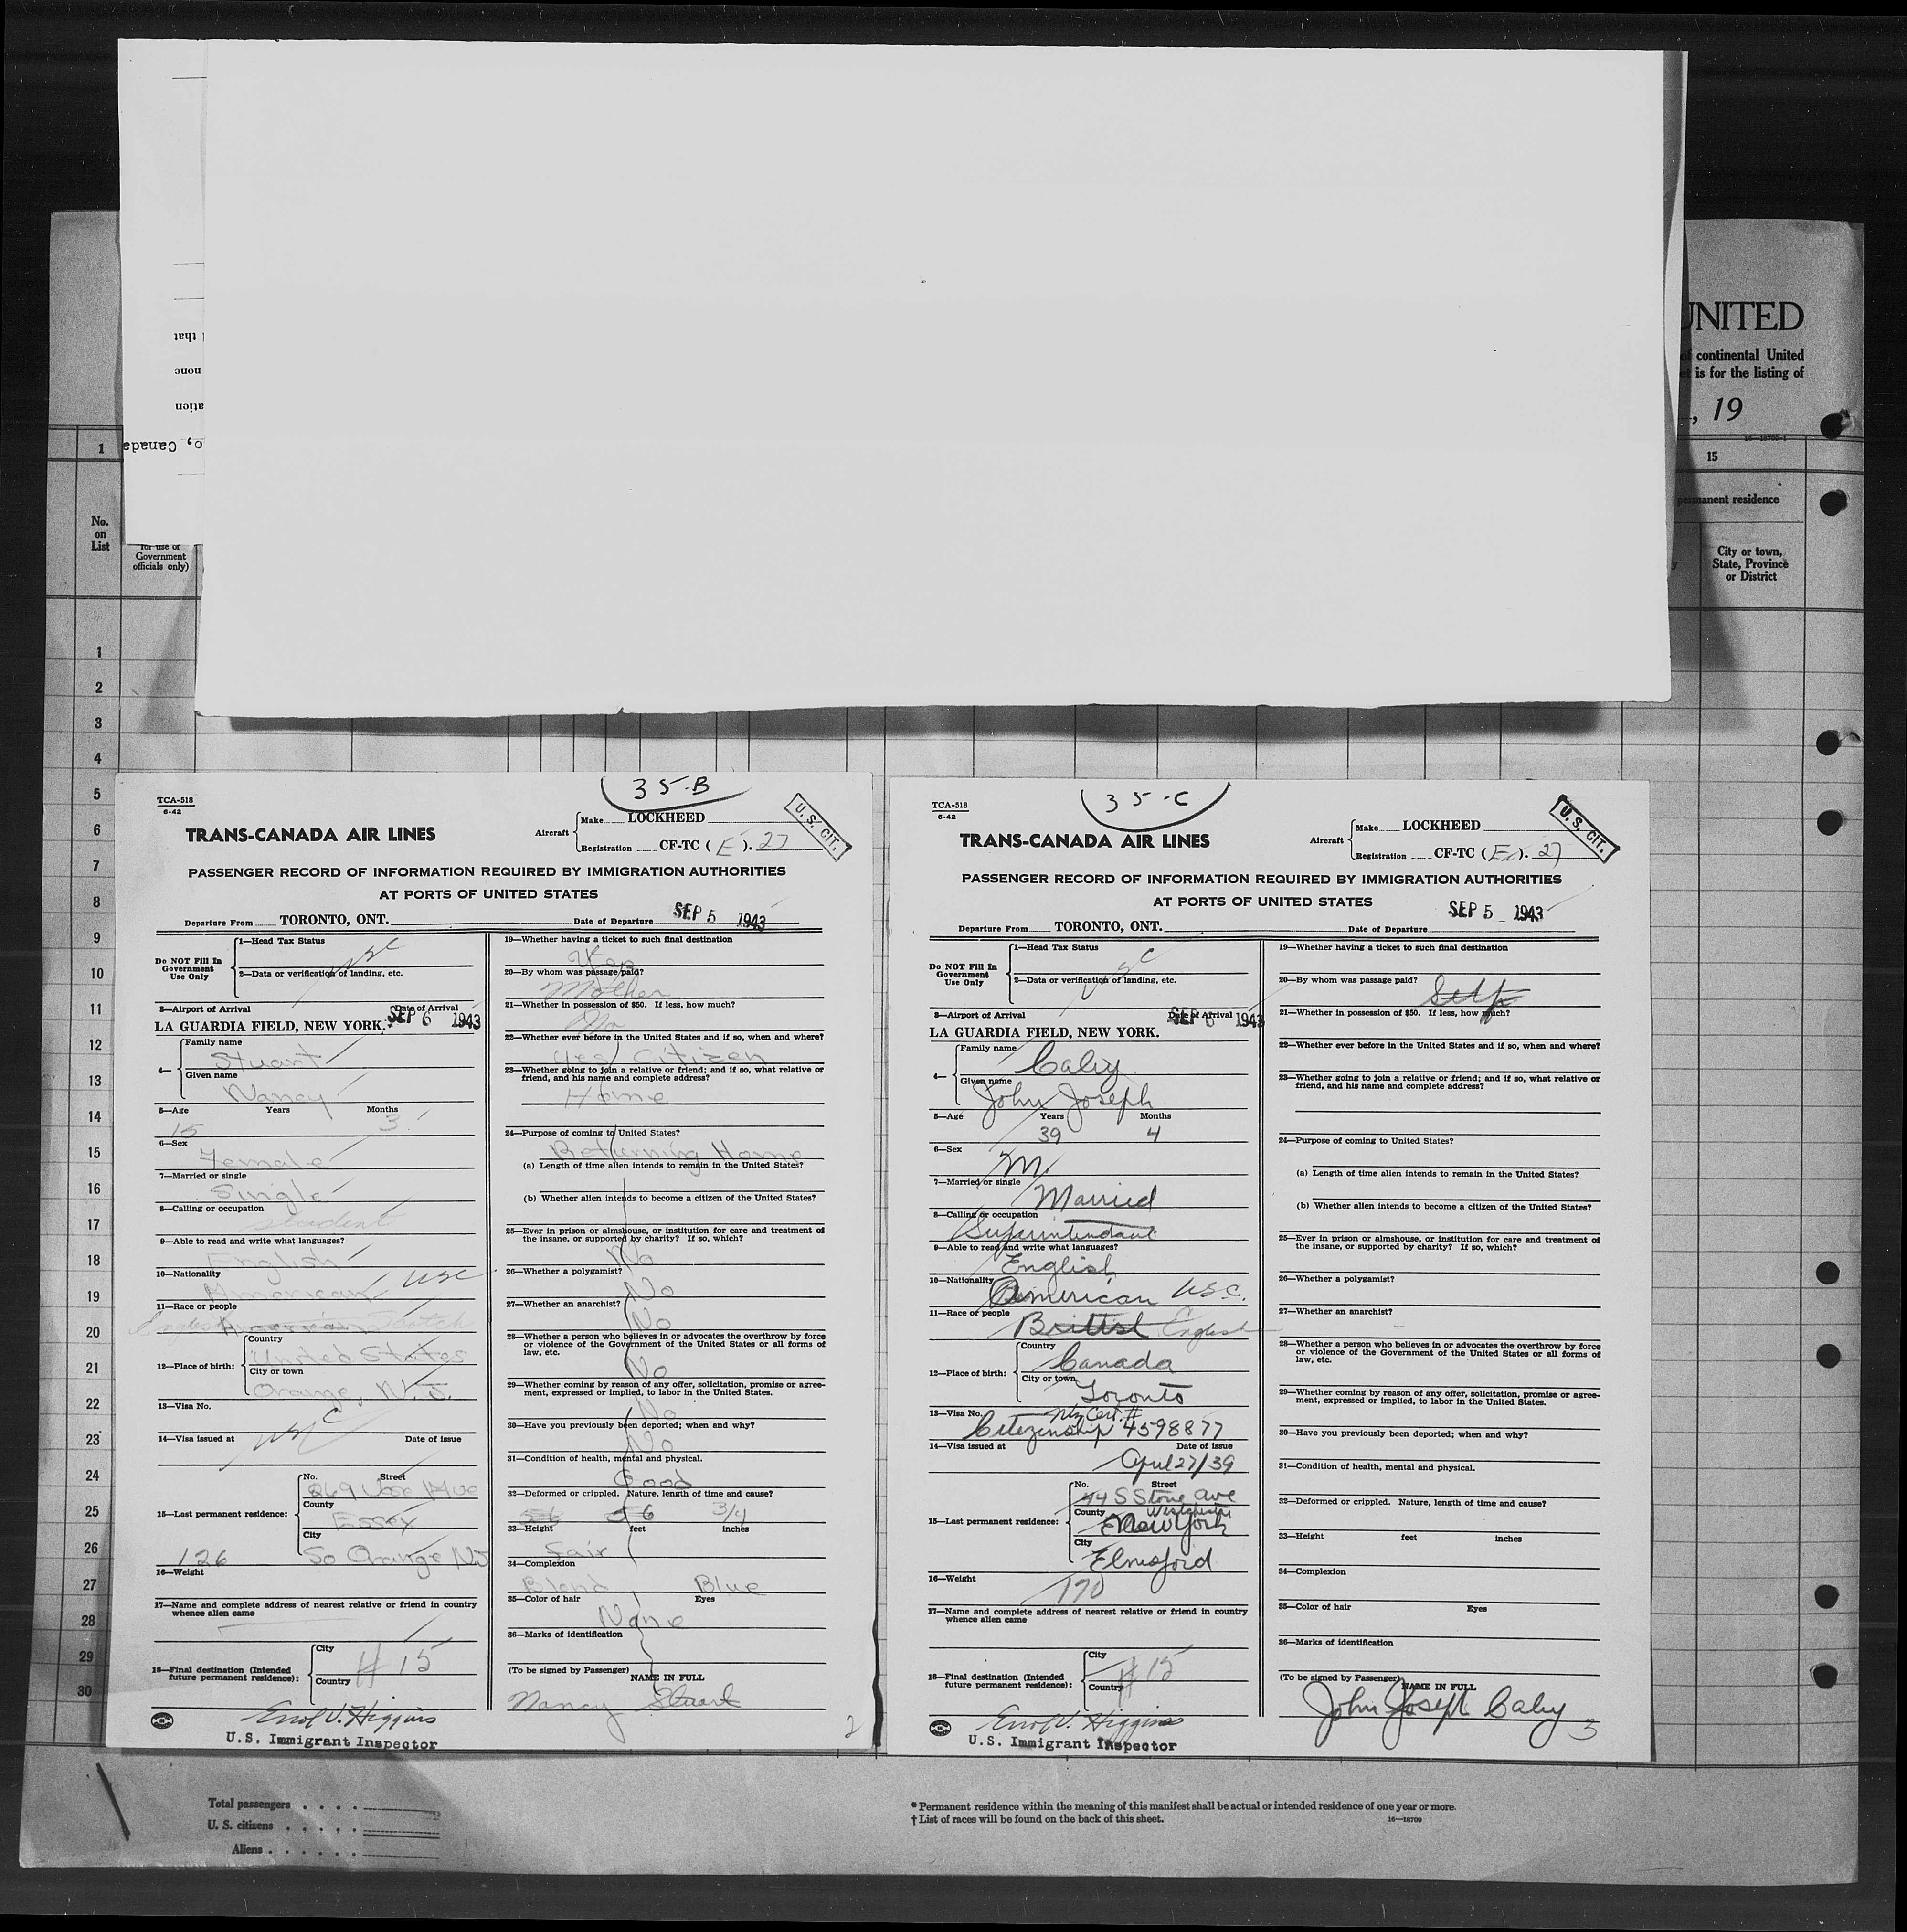 UNITED
of continental United
is for the listing of
, 19
16-18700-1
1
15
permanent residence
No.
on
List
for use of
Government
officials only)
City or town,
State, Province
or District
that
none
ation
o, Canada
1
2
3
4
5
6
7
8
9
10
11
12
13
14
15
16
17
18
19
20
21
22
23
24
25
26
27
28
29
30
35-B
TCA-518
6-42
TRANS-CANADA AIR LINES
Aircraft
Make LOCKHEED
Registration CF-TC ( E ). 27
U.S. CIT.
PASSENGER RECORD OF INFORMATION REQUIRED BY IMMIGRATION AUTHORITIES
AT PORTS OF UNITED STATES
Departure From TORONTO, ONT. Date of Departure SEP 5 1943
Do NOT Fill In
Government
Use Only
1—Head Tax Status
usc
2—Data or verification of landing, etc.
3—Airport of Arrival Date of Arrival
LA GUARDIA FIELD, NEW YORK. SEP 6 1943
4—
Family name
Stuart
Given name
Nancy
5—Age Years Months
15 3
6—Sex
Female
7—Married or single
Single
8—Calling or occupation
student
9—Able to read and write what languages?
English
10—Nationality
American usc
11—Race or people
English American Scotch
12—Place of birth:
Country
United States
City or town
Orange, N. J.
13—Visa No.
usc
14—Visa issued at Date of issue
15—Last permanent residence:
No. Street
Ave
County
Essex
City
So Orange NJ
126
16—Weight
17—Name and complete address of nearest relative or friend in country
whence alien came
18—Final destination (Intended
future permanent residence):
City
# 15
Country
Errol V. Higgins
U.S. Immigrant Inspector
19—Whether having a ticket to such final destination
Yes
20—By whom was passage paid?
Mother
21—Whether in possession of $50. If less, how much?
No
22—Whether ever before in the United States and if so, when and where?
Yes Citizen
23—Whether going to join a relative or friend; and if so, what relative or
friend, and his name and complete address?
Home
24—Purpose of coming to United States?
Returning Home
(a) Length of time alien intends to remain in the United States?
(b) Whether alien intends to become a citizen of the United States?
25—Ever in prison or almshouse, or institution for care and treatment of
the insane, or supported by charity? If so, which?
No
26—Whether a polygamist?
No
27—Whether an anarchist?
No
28—Whether a person who believes in or advocates the overthrow by force
or violence of the Government of the United States or all forms of
law, etc.
No
29—Whether coming by reason of any offer, solicitation, promise or agree-
ment, expressed or implied, to labor in the United States.
No
30—Have you previously been deported; when and why?
No
31—Condition of health, mental and physical.
Good
32—Deformed or crippled. Nature, length of time and cause?
5-6 5 6 3/4
33—Height feet inches
fair
34—Complexion
Blond Blue
35—Color of hair Eyes
None
36—Marks of identification
(To be signed by Passenger) NAME IN FULL
Nancy Stuart
2
35-C
TCA-518
6-42
TRANS-CANADA AIR LINES
Aircraft
Make LOCKHEED
Registration CF-TC ( E ). 27
U.S. CIT.
PASSENGER RECORD OF INFORMATION REQUIRED BY IMMIGRATION AUTHORITIES
AT PORTS OF UNITED STATES
SEP 5 1943
Departure From TORONTO, ONT. Date of Departure
Do NOT Fill In
Government
Use Only
1—Head Tax Status
usc
2—Data or verification of landing, etc.
3—Airport of Arrival Date of Arrival
SEP 6 1943
LA GUARDIA FIELD, NEW YORK.
4—
Family name
Caley
Given name
John Joseph
5—Age Years Months
39 4
6—Sex
M
7—Married or single
Married
8—Calling or occupation
Superintendant
9—Able to read and write what languages?
English
10—Nationality
American USC.
11—Race of people
British English
12—Place of birth:
Country
Canada
City or town
Toronto
13—Visa No. Ntz Cert. #
Citezenship 4598877
14—Visa issued at Date of issue
April 27/39
15—Last permanent residence:
No. Street
44 S Stone Ave
County Westchester
New York
City
Elmsford
16—Weight
170
17—Name and complete address of nearest relative or friend in country
whence alien came
18—Final destination (Intended
future permanent residence):
City
# 15
Country
Errol V. Higgins
U.S. Immigrant Inspector
19—Whether having a ticket to such final destination
20—By whom was passage paid?
Self
21—Whether in possession of $50. If less, how much?
22—Whether ever before in the United States and if so, when and where?
23—Whether going to join a relative or friend; and if so, what relative or
friend, and his name and complete address?
24—Purpose of coming to United States?
(a) Length of time alien intends to remain in the United States?
(b) Whether alien intends to become a citizen of the United States?
25—Ever in prison or almshouse, or institution for care and treatment of
the insane, or supported by charity? If so, which?
26—Whether a polygamist?
27—Whether an anarchist?
28—Whether a person who believes in or advocates the overthrow by force
or violence of the Government of the United States or all forms of
law, etc.
29—Whether coming by reason of any offer, solicitation, promise or agree-
ment, expressed or implied, to labor in the United States.
30—Have you previously been deported; when and why?
31—Condition of health, mental and physical.
32—Deformed or crippled. Nature, length of time and cause?
33—Height feet inches
34—Complexion
35—Color of hair Eyes
36—Marks of identification
(To be signed by Passenger) NAME IN FULL
John Joseph Caley
3
Total passengers . . . .
U. S. citizens . . . . .
Aliens . . . . . .
* Permanent residence within the meaning of this manifest shall be actual or intended residence of one year or more.
† List of races will be found on the back of this sheet.
16—18700